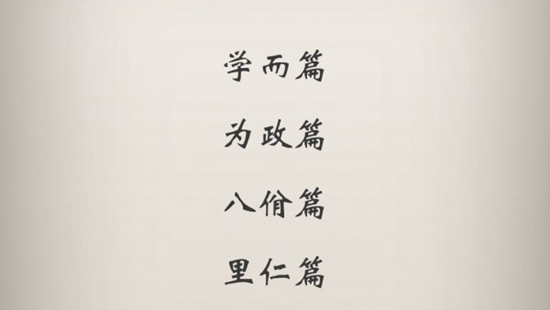 学而篇
为政篇
八佾篇
里仁篇